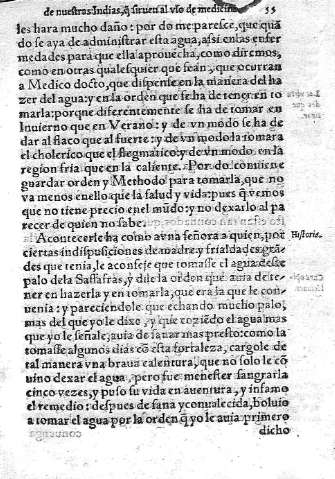 de nuestras Indias, q̃ siruen al vso de medicina. 55
les hara mucho daño: por do me paresce, que quã
do se aya de administrar esta agua, assi en las enfer
medades para que ella aprouecha, como diremos,
como en otras qualesquier que seãn, que ocurran
a Medico docto, que dispense en la manera del ha
zer del agua: y en la orden que se ha de tener en to
marla: porque diferentemente se ha de tomar en
Inuierno que en Verano: y de vn modo se ha de
dar al flaco que al fuerte: y de vn modo la tomara
el cholerico que el flegmatico: y de vn modo. en la
region fria que en la caliente. Por do conuiene
guardar orden y Methodo para tomarla, que no
va menos en ello que la salud y vida: pues q̃ vemos
que no tiene precio en el mũdo: y no dexarlo al pa
recer de quien no sabe.
Acontecerle ha como a vna señora a quien, por
Historia.
ciertas indisposiciones de madre, y frialdades grã
des que tenia, le aconseje que tomasse el agua deste
palo dela Sassafras, y dile la orden que auia de te-
ner en hazerla y en tomarla, que era la que le con-
uenia: y pareciendole que echando mucho palo,
mas del que yo le dixe, y que coziẽdo el agua mas
que yo le señale, auia de sanar mas presto: como la
tomasse algunos dias cõ esta fortaleza, cargole de
tal manera vna braua calentura, que no solo le cõ
uino dexar el agua, pero fue menester sangrarla
cinco vezes, y puso su vida en auentura, y infamo
el remedio: despues de sana y conualecida, boluio
a tomar el agua por la orden q̃ yo le auia primero
dicho